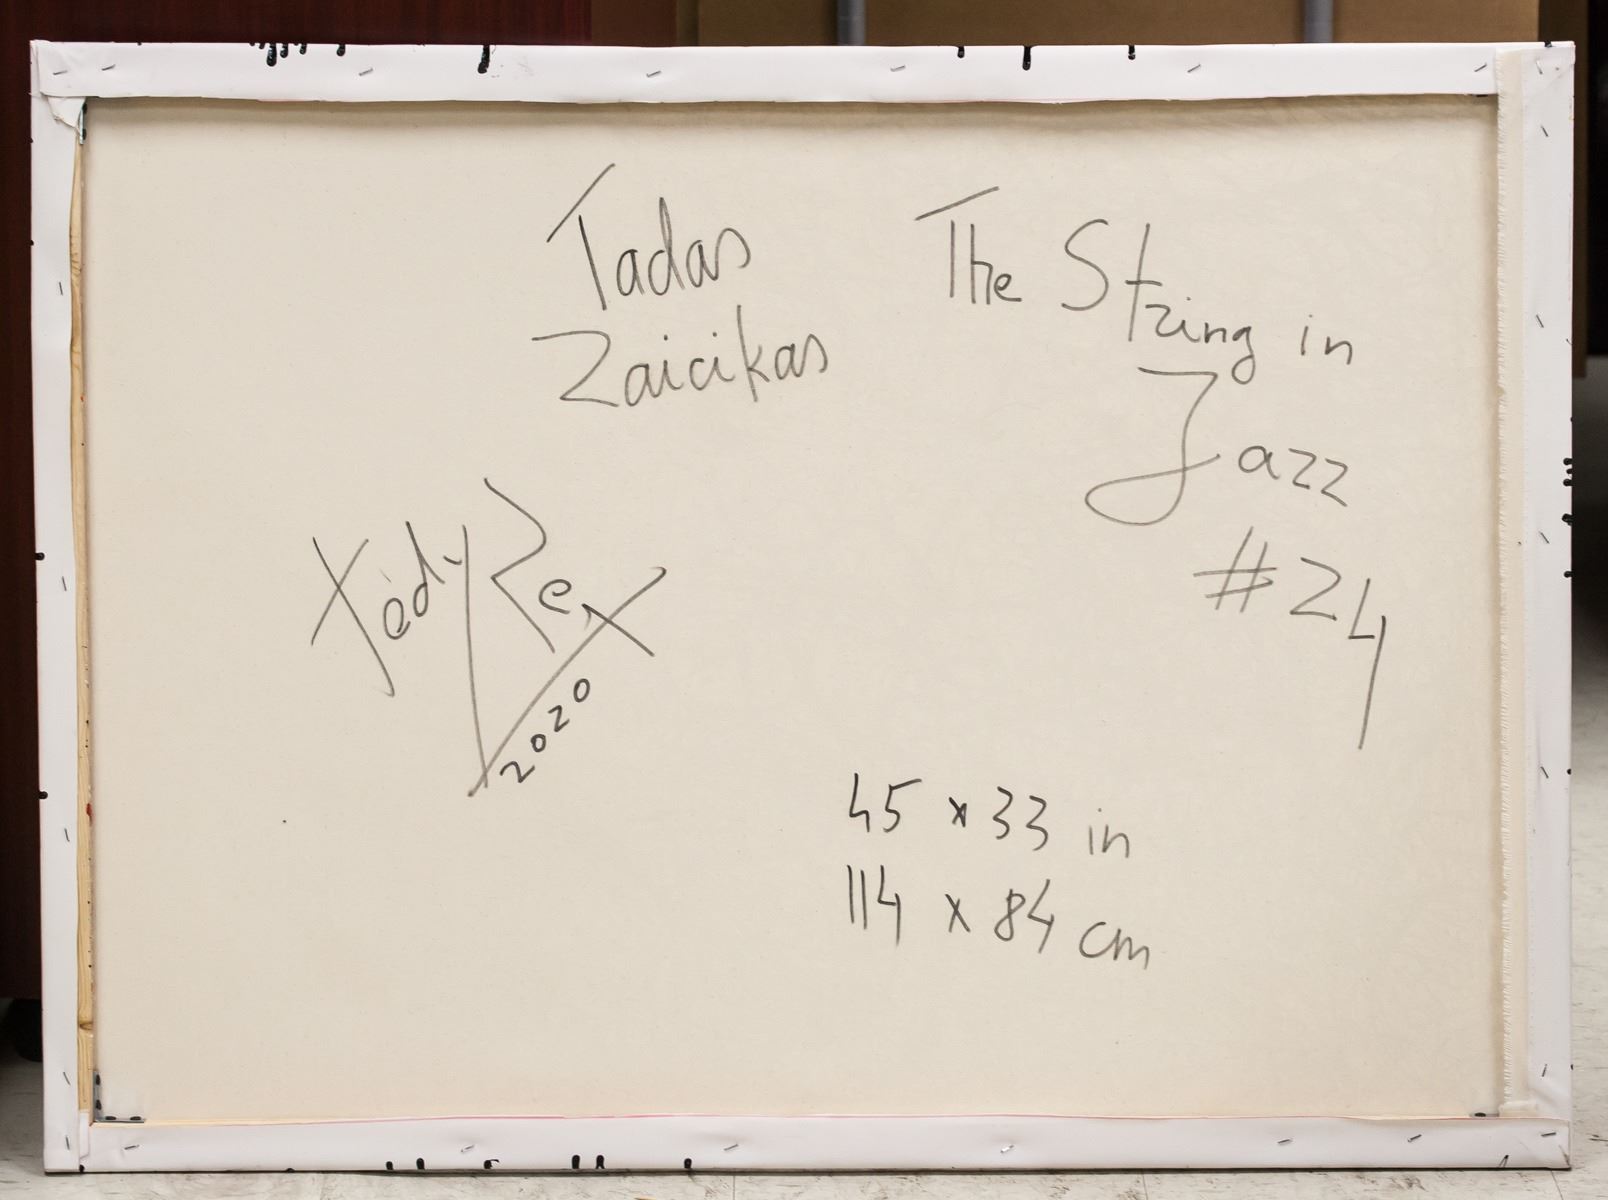 Tadas
Zaicikas
The String in
Jazz
#24
Tedy Rex
2020
45 x 33 in
114 x 84 cm